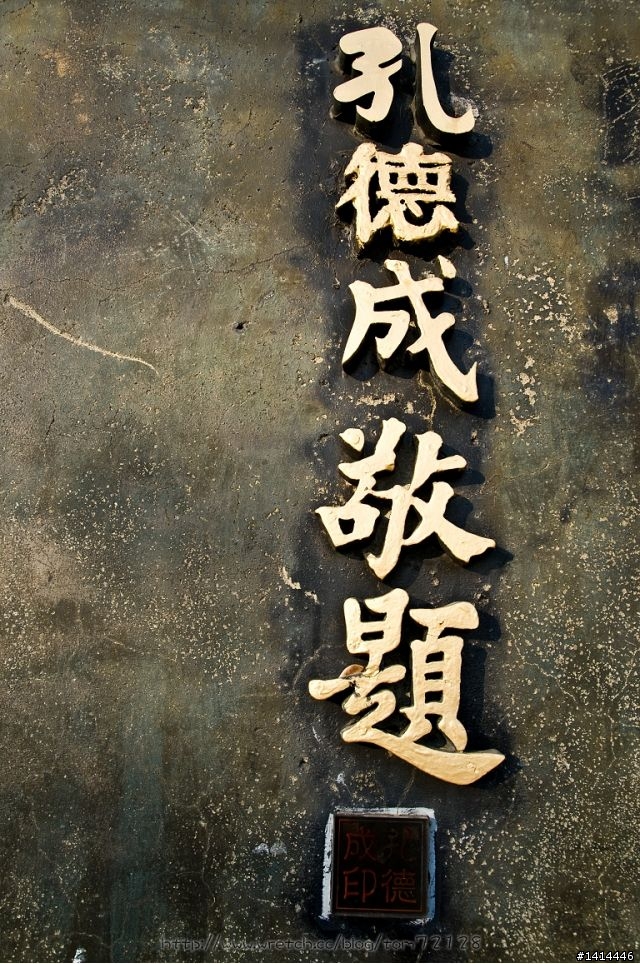 孔德成敬題
孔德
成印
http://www.wretch.cc/blog/tor-72128
#1414446